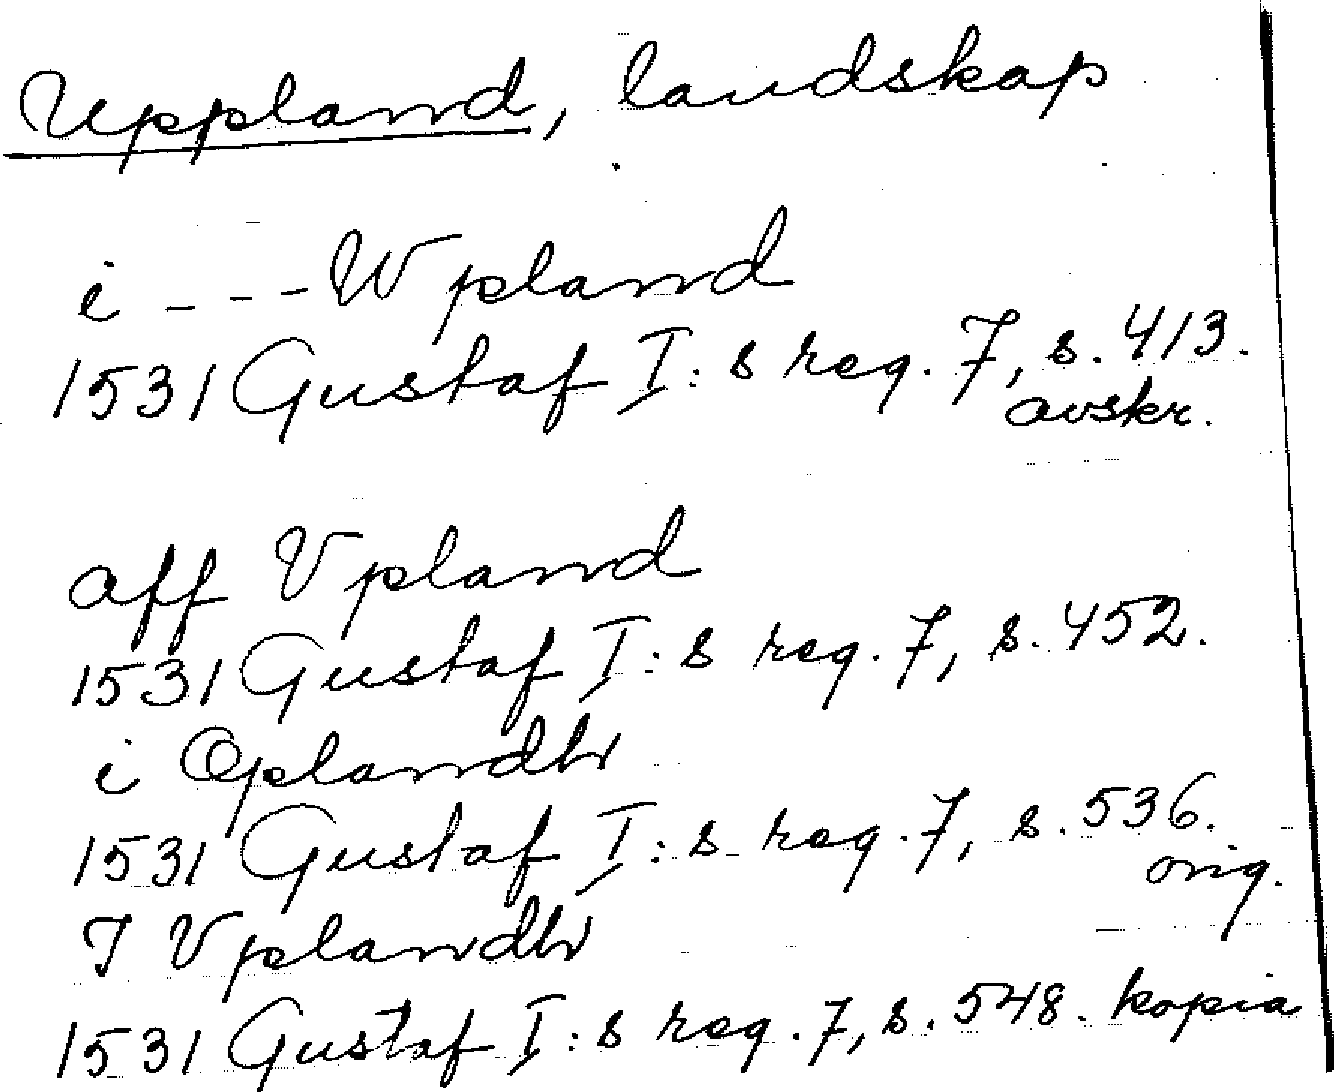 Uppland, landskap
i - - - Wpland
1531 Gustaf I:s reg. 7, s. 413.
avskr.
aff Vpland
1531 Gustaf I:s reg. 7, s. 452.
i Oplandh
1531 Gustaf I:s reg. 7, s. 536.
orig.
I Vplandh
1531 Gustaf I:s reg. 7, s. 548. kopia